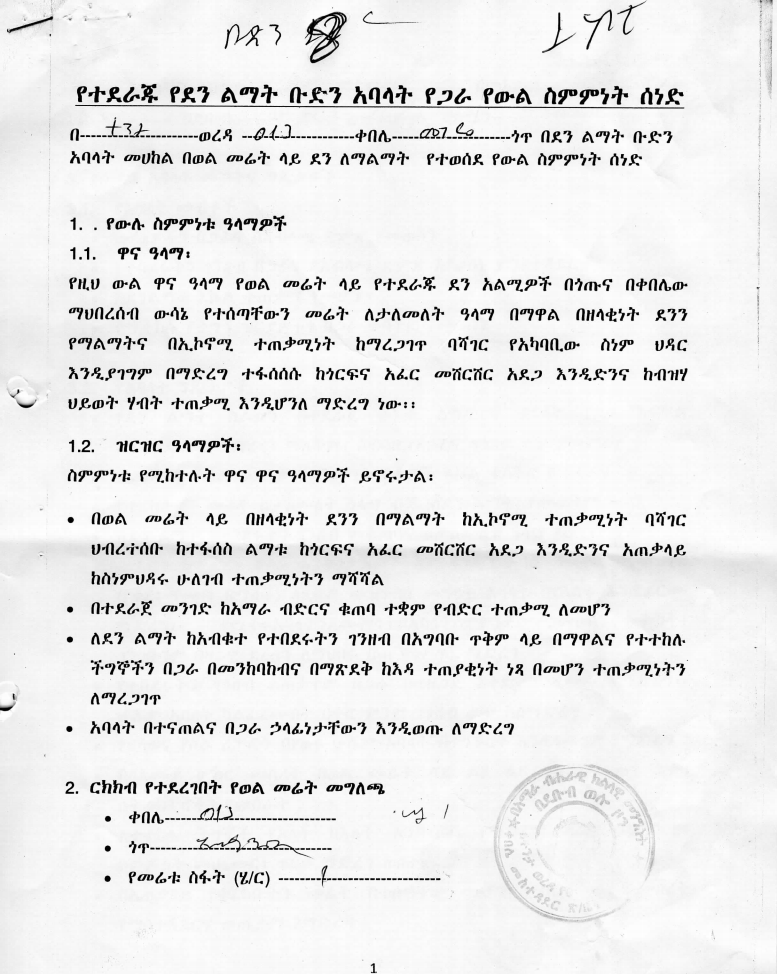 ቡድን
የተደራጁ የደን ልማት ቡድን አባላት የጋራ የውል ስምምነት ሰነድ
በ-----------------------ወረዳ ---------------------ቀበሌ-----------------------ጎጥ በደን ልማት ቡድን
አባላት መሀከል በወል መሬት ላይ ደን ለማልማት የተወሰደ የውል ስምምነት ሰነድ
1. . የውሉ ስምምነቱ ዓላማዎች
1.1. ዋና ዓላማ፡
የዚህ ውል ዋና ዓላማ የወል መሬት ላይ የተደራጁ ደን አልሚዎች በጎጡና በቀበሌው
ማህበረሰብ ውሳኔ የተሰጣቸውን መሬት ለታለመለት ዓላማ በማዋል በዘላቂነት ደንን
የማልማትና በኢኮኖሚ ተጠቃሚነት ከማረጋገጥ ባሻገር የአካባቢው ስነም ህዳር
እንዲያገግም በማድረግ ተፋሰሰሱ ከጎርፍና አፈር መሸርሸር አደጋ እንዲድንና ከብዝሃ
ህይወት ሃብት ተጠቃሚ እንዲሆንለ ማድረግ ነው፡፡
1.2. ዝርዝር ዓላማዎች፡
ስምምነቱ የሚከተሉት ዋና ዋና ዓላማዎች ይኖሩታል፡
• በወል መሬት ላይ በዘላቂነት ደንን በማልማት ከኢኮኖሚ ተጠቃሚነት ባሻገር
ህብረተሰቡ ከተፋሰስ ልማቱ ከጎርፍና አፈር መሸርሸር አደጋ እንዲድንና አጠቃላይ
ከስነምህዳሩ ሁለገብ ተጠቃሚነትን ማሻሻል
• በተደራጀ መንገድ ከአማራ ብድርና ቁጠባ ተቋም የብድር ተጠቃሚ ለመሆን
• ለደን ልማት ከአብቁተ የተበደሩትን ገንዘብ በአግባቡ ጥቅም ላይ በማዋልና የተተከሉ
ችግኞችን በጋራ በመንከባከብና በማጽደቅ ከእዳ ተጠያቂነት ነጻ በመሆን ተጠቃሚነትን
ለማረጋገጥ
• አባላት በተናጠልና በጋራ ኃላፊነታቸውን እንዲወጡ ለማድረግ
2. ርክክብ የተደረገበት የወል መሬት መግለጫ
• ቀበሌ-----------------------------
• ጎጥ-------------------------------
• የመሬቱ ስፋት (ሄ/ር) ---------------------------
1